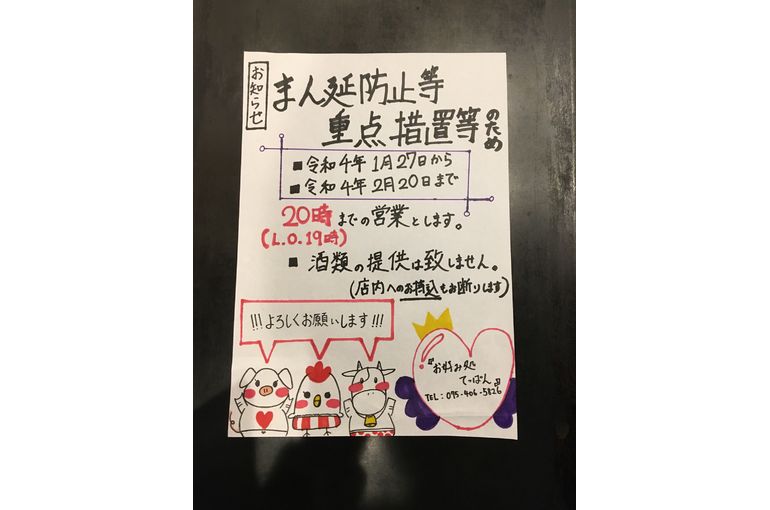 お知らせ
まん延防止等
重点措置等のため
■令和4年1月27日から
■令和4年2月20日まで
20時までの営業とします。
(L.O.19時)
■酒類の提供は致しません。
(店内へのお持込もお断りします)
!!!よろしくお願いします!!!
お好み処
てっぱん
TEL:095-406-5826